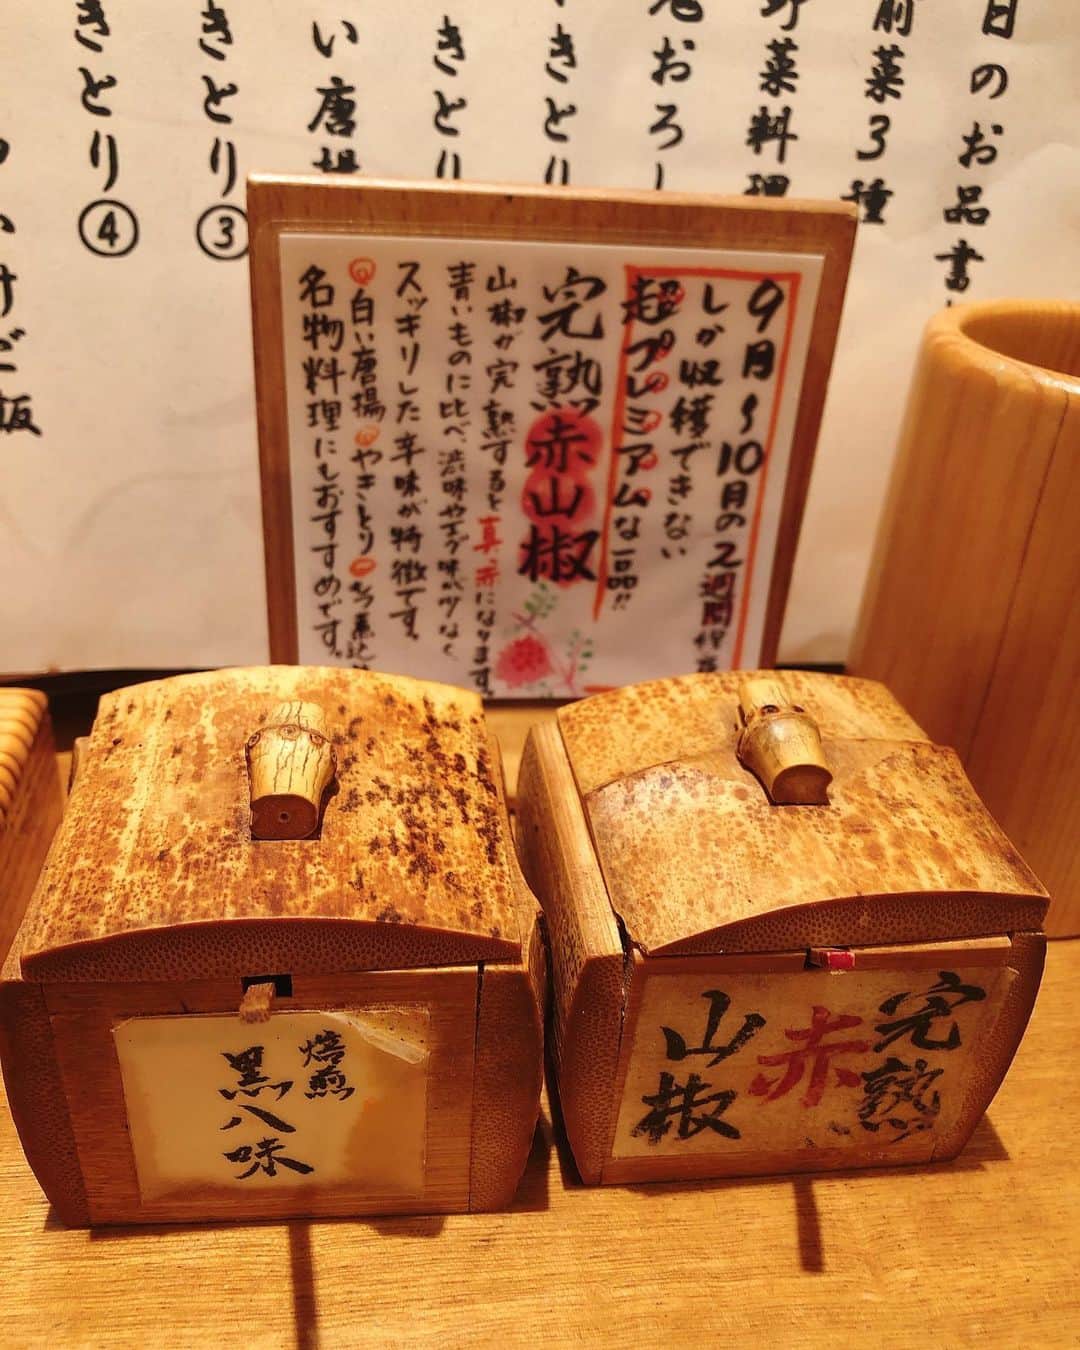 日のお品書
前菜3種
野菜料理
おろし
きとり
きとり
い唐揚
きとり③
きとり④
9月〜10月の2週間程度
しか収穫できない
超プレミアムな一品!!
完熟赤山椒
山椒が完熟すると真っ赤になります
青いものに比べ、渋味やエグ味が少なく
スッキリした辛味が特徴です。
白い唐揚やきとり
名物料理にもおすすめです。
焙煎
黒八味
完熟
赤
山椒